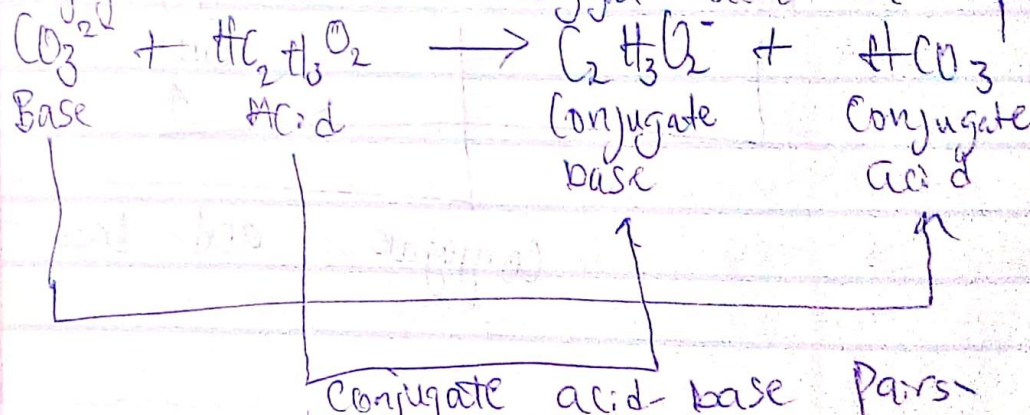 CO₃²⁻ + HC₂H₃O₂ → C₂H₃O₂⁻ + HCO₃
Base Acid Conjugate Conjugate
base acid
Conjugate acid-base Pairs